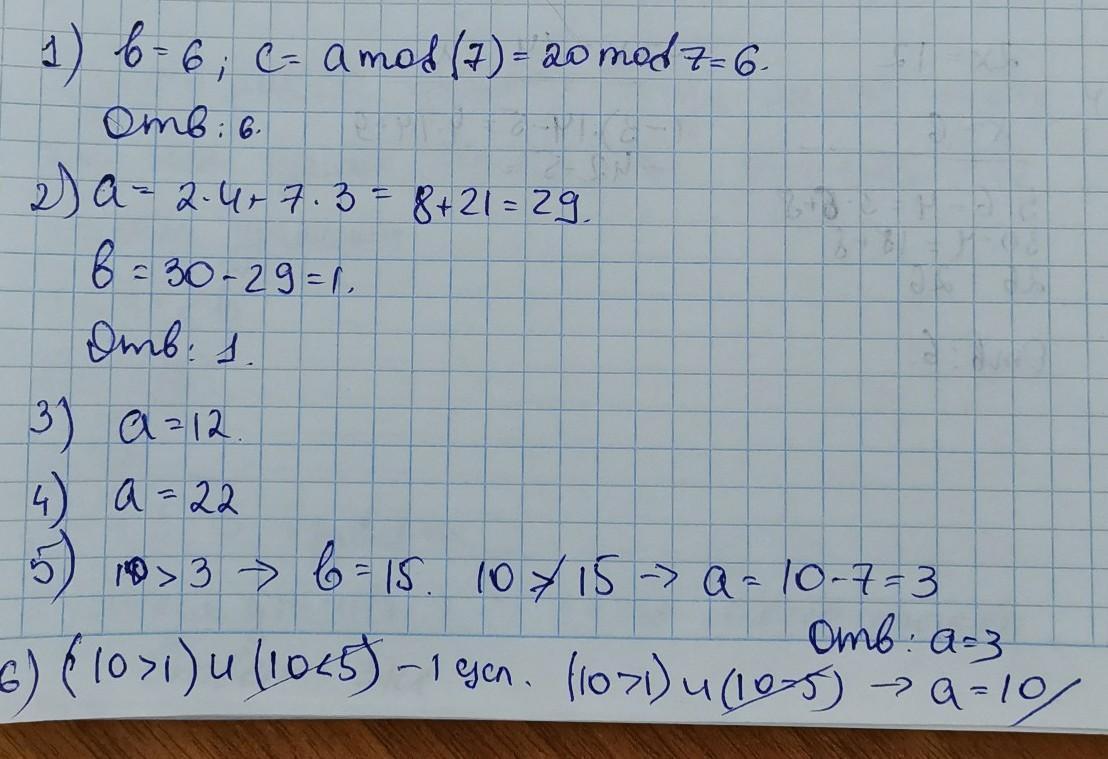 1) b = 6; c = a mod (7) = 20 mod 7 = 6.
Отв: 6.
2) a = 2·4 + 7·3 = 8+21 = 29.
b = 30 - 29 = 1.
Отв: 1.
3) a = 12.
4) a = 22
5) 10 > 3 → b = 15. 10 ≯ 15 → a = 10 - 7 = 3
Отв: a = 3
6) (10>1) и (10<5) - 1 усл. (10>1) и (10>5) → a = 10